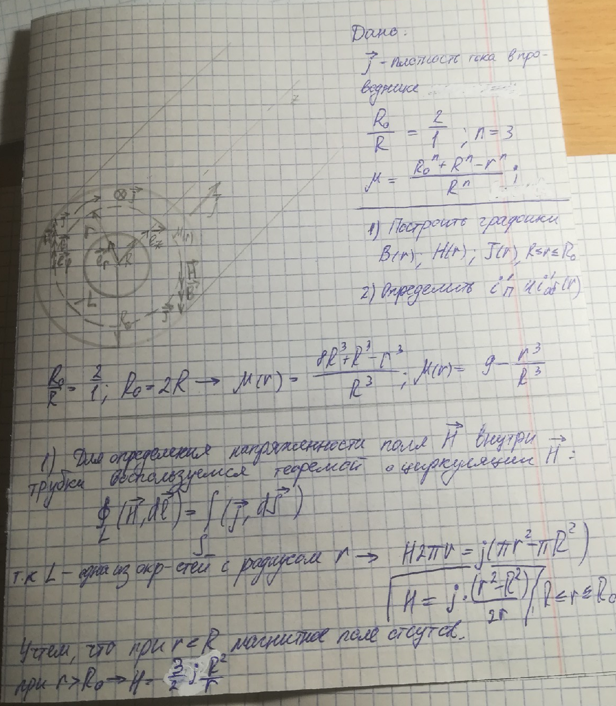 Дано:
j - плотность тока в про-
воднике
R₀/R = 2/1 ; n = 3
μ = (R₀ⁿ + Rⁿ - rⁿ)/Rⁿ ;
1) Построить графики
B(r), H(r), J(r), R ≤ r ≤ R₀
2) Определить i'п и i'об(r)
R₀/R = 2/1 ; R₀ = 2R → μ(r) = (8R³ + R³ - r³)/R³ ; μ(r) = 9 - r³/R³
1) Для определения напряженности поля H внутри
трубки воспользуемся теоремой о циркуляции H:
∮_L (H, dl) = ∫_S (j, dS)
т.к L - одна из окр-стей с радиусом r → H2πr = j(πr² - πR²)
H = j · (r² - R²)/2r , R ≤ r ≤ R₀
Учтем, что при r < R магнитное поле отсутсв.
при r > R₀ → H = 3/2 j R²/r